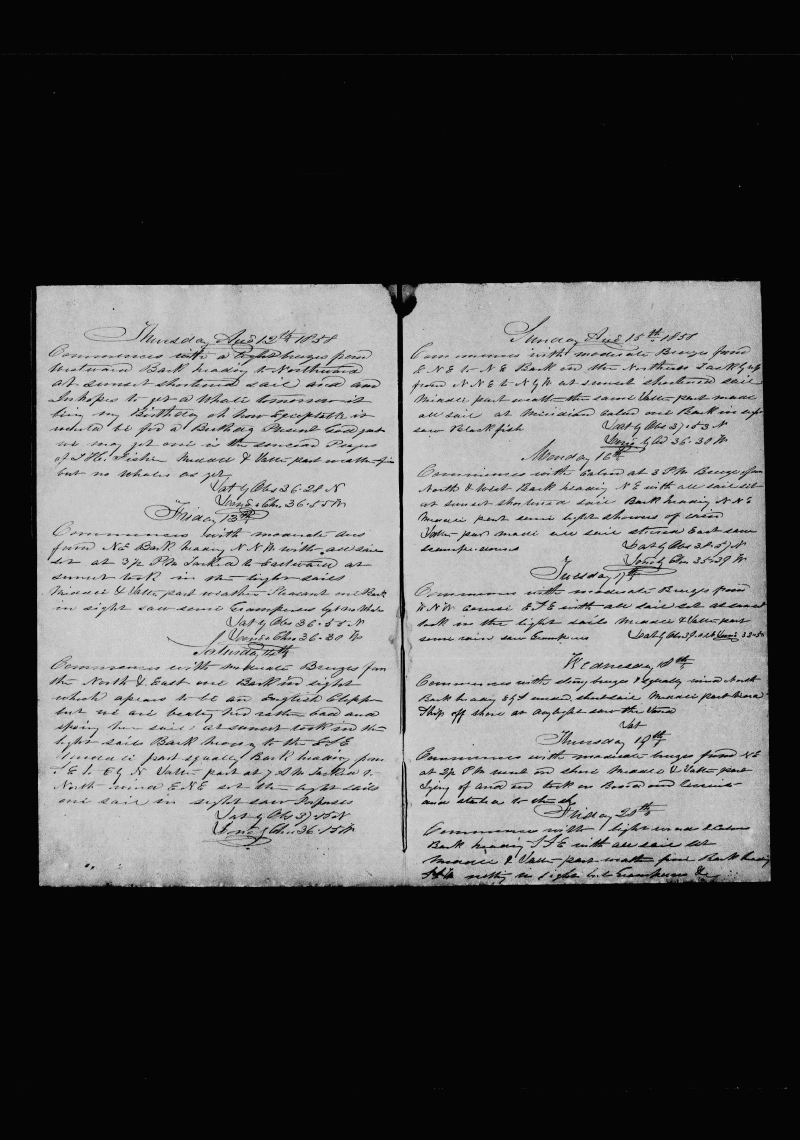 Thursday Aug 12th 1858
Commences with a light breeze from
Westward Bark heading to Northward
at sunset shortened sail and am
In hopes to get a Whale tomorrow it
being my Birthday oh how Exceptable it
would be for a Birthday Present God grant
we may get one is the sincear Prayer
of J H Fisher Middle & Latter part weather fine
but no Whales as yet
Lat by Obs 36·28 N
Long by Chr 36·55 W
Friday 13th
Commences with moderate
from N E Bark heading N N W with all sail
set at 3½ P M Tacked to Eastward at
sunset took in the light sails
Middle & Latter part weather Pleasant one Bark
in sight saw some Grampuses but no Whales
Lat by Obs 36·55 N
Long by Chr 36·30 W
Saturday 14th
Commences with moderate Breezes from
the North & East one Bark in sight
which apears to be an English Clipper
but we are beating her rather bad and
sparing her sail at sunset took in the
light sails Bark heading to the E S E
Middle part squally Bark heading from
E to E by N Latter part at 7 A M Tacked to
North wind E N E set the light sails
one sail in sight saw Porposes
Lat by Obs 37·15 N
Long by Chr 36·15 W
Sunday Aug 15th 1858
Commences with moderate Breezes from
E N E to N E Bark on the Northern Tack by up
from N N E to N by W at sunset shortened sail
Middle part weather the same Latter part made
all sail at Meridian Calm one Bark in sight
saw Blackfish
Lat by Obs 37·53 N
Long by Chr 36·30 W
Monday 16th
Commences with Calm at 3 P M Breezes from
North & West Bark heading N E with all sail set
at sunset shortened sail Bark heading N N E
Middle part some light showers of rain
Latter part made all sail steered East saw
Lat by Obs 38·57 N
Long by Chr 35·39 W
Tuesday 17th
Commences with moderate Breezes from
W N W Course E S E with all sail set at sunset
took in the light sails Middle & Latter part
some rain saw Grampuses
Wednesday 18th
Commences with strong breezes & squally wind North
Bark heading E by S under short sail Middle part
Ship off shore at daylight saw the land
Lat
Thursday 19th
Commences with moderate breezes from N E
at 2½ P M went on shore Middle & Latter part
lying of and on took on Board
and started to the
Friday 20th
Commences with light wind & Calms
Bark heading S S E with all sail set
Middle & Latter part weather fine Bark heading
nothing in sight but Grampuses &c